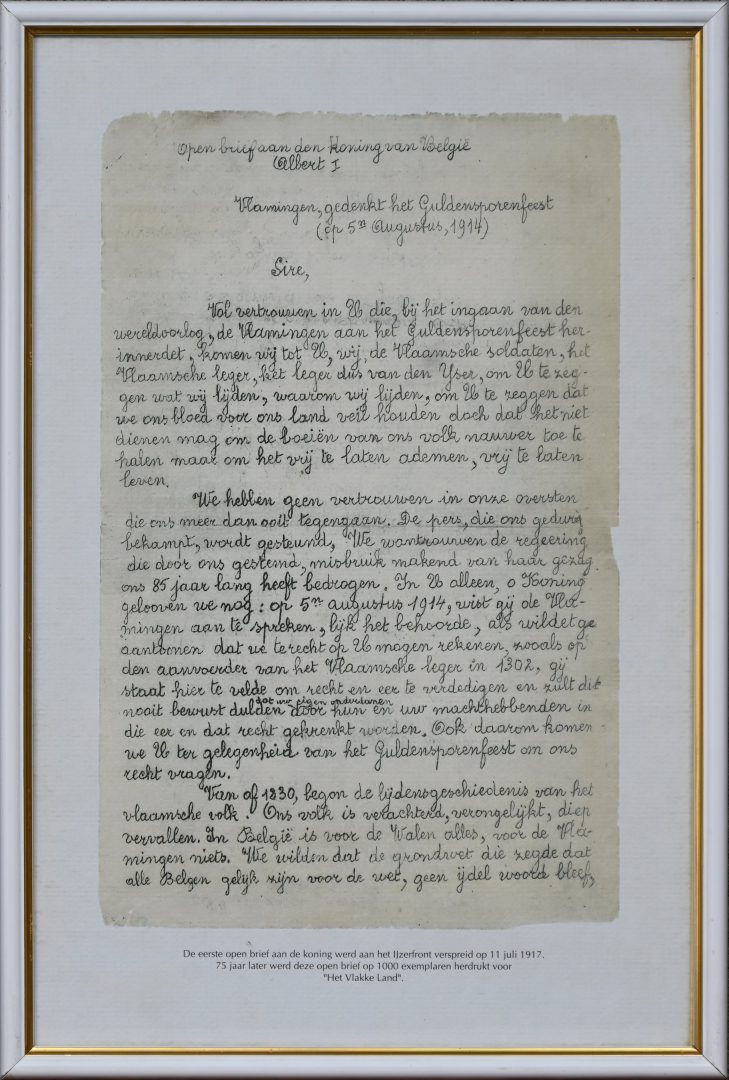 Open brief aan den Koning van België
Albert I
Vlamingen, gedenkt het Guldensporenfeest
(op 5en Augustus, 1914)
Sire,
Vol vertrouwen in U die, bij het ingaan van den
wereldoorlog, de Vlamingen aan het Guldensporenfeest her-
innerdet, komen wij tot U, wij, de Vlaamsche soldaten, het
Vlaamsche leger, het leger dus van den Yser, om U te zeg-
gen wat wij lijden, waarom wij lijden, om U te zeggen dat
we ons bloed voor ons land veil houden doch dat het niet
dienen mag om de boeiën van ons volk nauwer toe te
halen maar om het vrij te laten ademen, vrij te laten
leven.
We hebben geen vertrouwen in onze oversten
die ons meer dan ooit tegengaan. De pers, die ons gedurig
bekampt, wordt gesteund, We wantrouwen de regeering
die door ons gestemd, misbruik makend van haar gezag
ons 85 jaar lang heeft bedrogen. In U alleen, o Koning
gelooven we nog: op 5en augustus 1914, wist gij de Vla-
mingen aan te spreken, lijk het behoorde, als wildet ge
aantoonen dat we terecht op U mogen rekenen, zooals op
den aanvoerder van het Vlaamsche leger in 1302, gij
staat hier te velde om recht en eer te verdedigen en zult dit
dat uw eigen onderdanen
nooit bewust dulden door hun en uw machthebbenden in
die eer en dat recht gekrenkt worden. Ook daarom komen
we U ter gelegenheid van het Guldensporenfeest om ons
recht vragen.
Van of 1830, begon de lijdensgeschiedenis van het
vlaamsche volk. Ons volk is verachterd, verongelijkt, diep
vervallen. In België is voor de Walen alles, voor de Vla-
mingen niets. We wilden dat de grondwet die zegde dat
alle Belgen gelijk zijn voor de wet, geen ijdel woord bleef,
De eerste open brief aan de koning werd aan het IJzerfront verspreid op 11 juli 1917.
75 jaar later werd deze open brief op 1000 exemplaren herdrukt voor
"Het Vlakke Land".